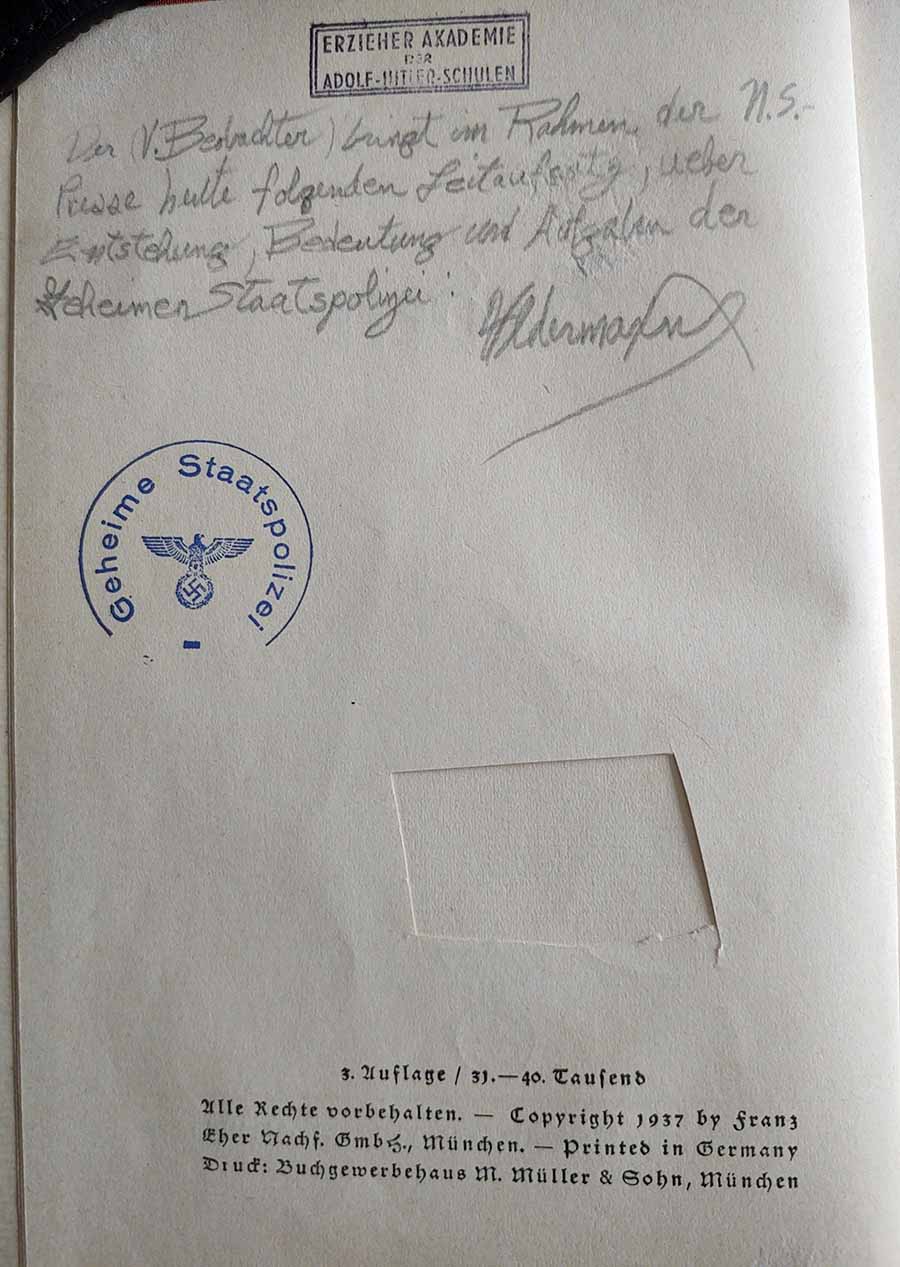 ERZIEHER AKADEMIE
DER
ADOLF-HITLER-SCHULEN
Der (V. Beobachter) bringt im Rahmen der N.S.-
Presse heute folgenden Leitaufsatz, ueber
Entstehung, Bedeutung und Aufgaben der
Geheimen Staatspolizei:
Geheime Staatspolizei
3. Auflage / 31.—40. Tausend
Alle Rechte vorbehalten. — Copyright 1937 by Franz
Eher Nachf. GmbH., München. — Printed in Germany
Druck: Buchgewerbehaus M. Müller & Sohn, München